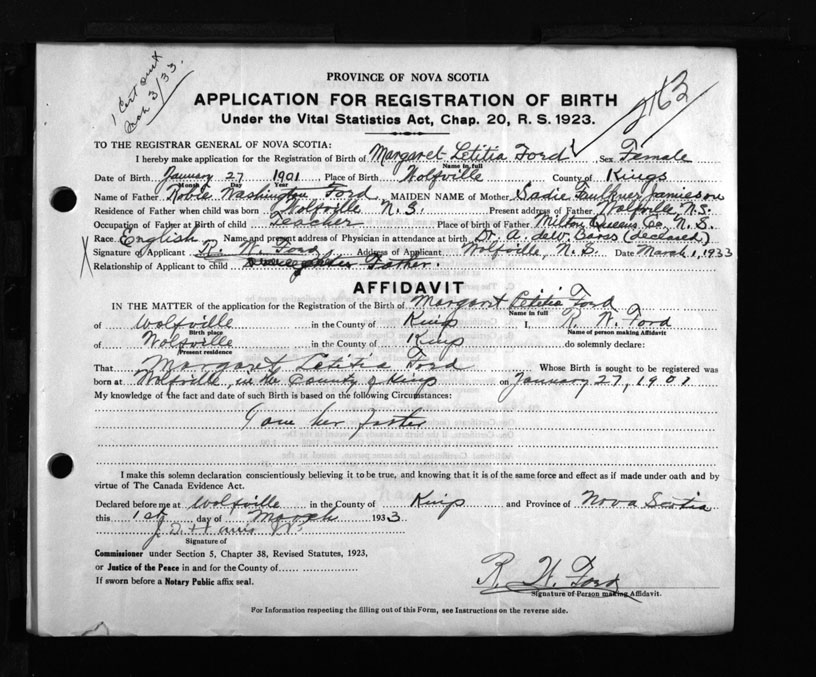 1 Cert
3/33.
2163
PROVINCE OF NOVA SCOTIA
APPLICATION FOR REGISTRATION OF BIRTH
Under the Vital Statistics Act, Chap. 20, R. S. 1923.
TO THE REGISTRAR GENERAL OF NOVA SCOTIA:
I hereby make application for the Registration of Birth of Margaret Letitia Ford Sex Female
Name in full
Date of Birth January 27 1901 Place of Birth Wolfville County of Kings
Month Day Year
Name of Father Robie Washington Ford MAIDEN NAME of Mother Sadie Faulkner Jamieson
Residence of Father when child was born Wolfville N.S. Present address of Father Wolfville, N.S.
Occupation of Father at Birth of child Teacher Place of birth of Father Milton Queens Co, N.S.
Race English Name and present address of Physician in attendance at birth Dr. A. deW. Barss (deceased)
Signature of Applicant R. W. Ford Address of Applicant Wolfville, N.S. Date March 1, 1933
Relationship of Applicant to child Father.
AFFIDAVIT
IN THE MATTER of the application for the Registration of the Birth of Margaret Letitia Ford
Name in full
of Wolfville in the County of Kings I, R. W. Ford
Birth place Name of person making Affidavit
of Wolfville in the County of Kings do solemnly declare:
Present residence
That Margaret Letitia Ford Whose Birth is sought to be registered was
born at Wolfville, in the County of Kings on January 27, 1901
My knowledge of the fact and date of such Birth is based on the following Circumstances:
I am her father
I make this solemn declaration conscientiously believing it to be true, and knowing that it is of the same force and effect as if made under oath and by
virtue of The Canada Evidence Act.
Declared before me at Wolfville in the County of Kings and Province of Nova Scotia
this 1st day of March 1933
Signature of
Commissioner under Section 5, Chapter 38, Revised Statutes, 1923,
or Justice of the Peace in and for the County of
If sworn before a Notary Public affix seal.
R. W. Ford
Signature of Person making Affidavit.
For Information respecting the filling out of this Form, see Instructions on the reverse side.